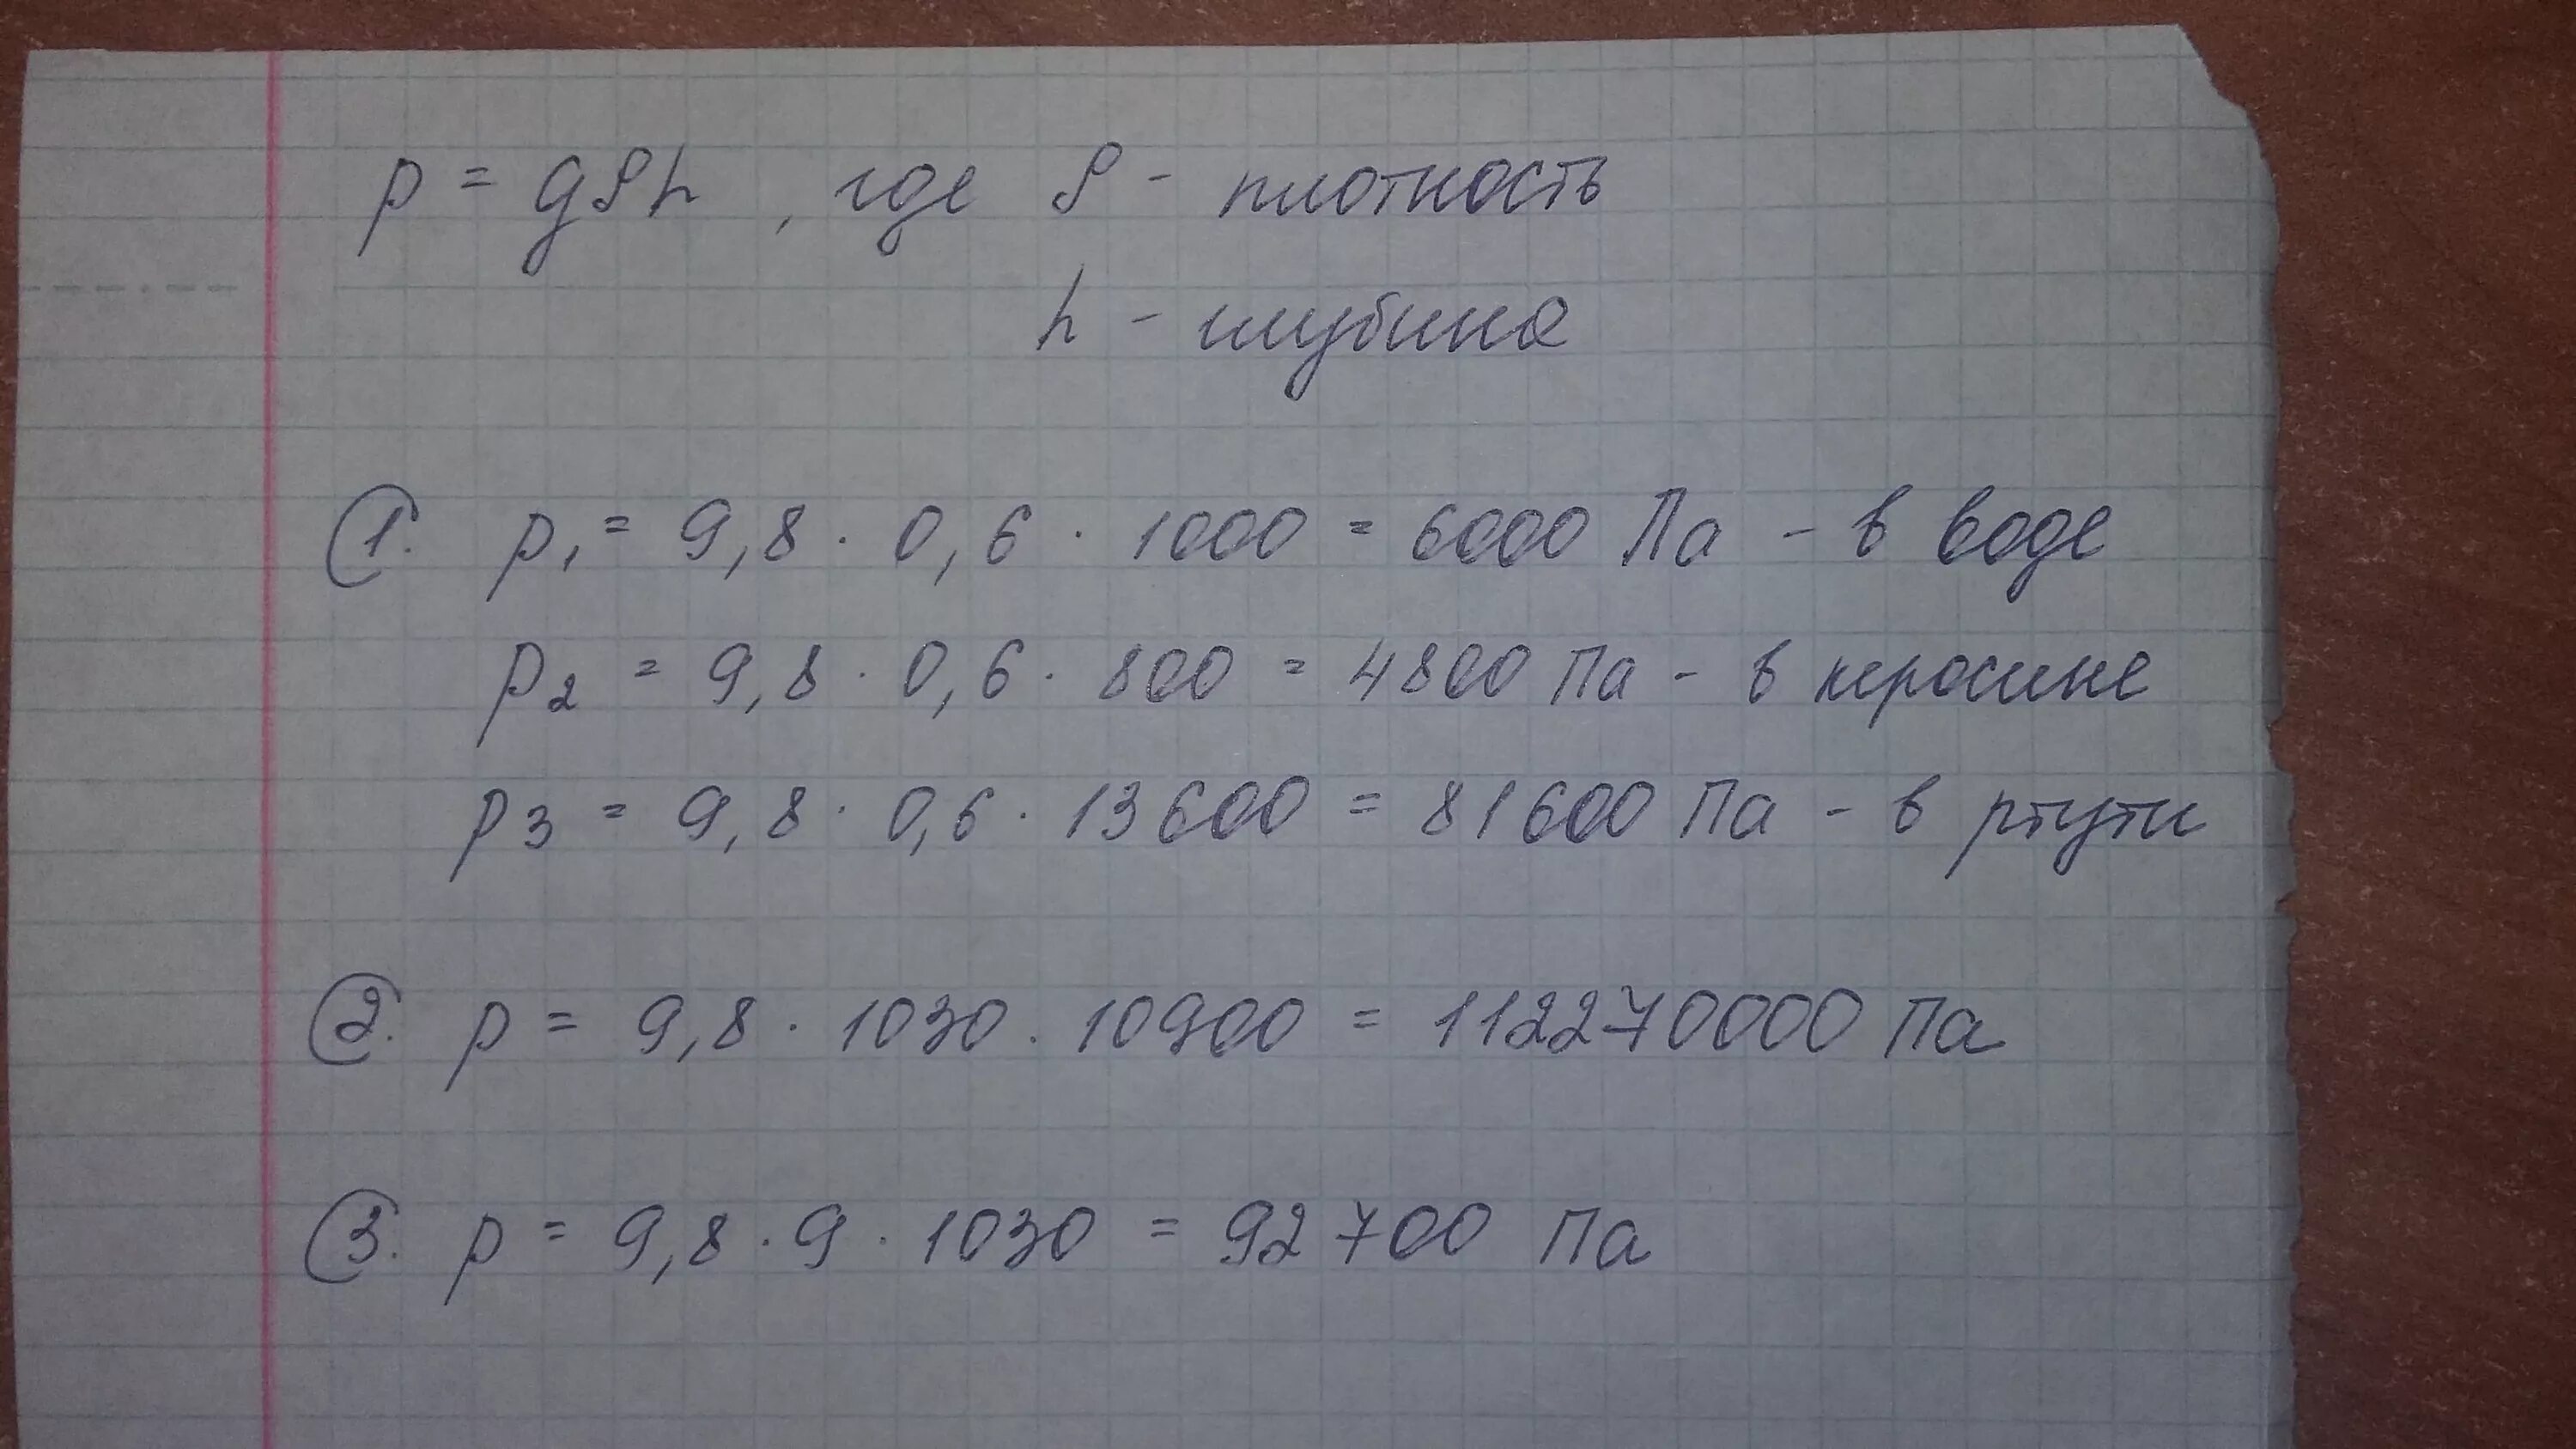 p = gρh , где ρ - плотность
h - глубина
1. p₁ = 9,8 · 0,6 · 1000 = 6000 Па - в воде
p₂ = 9,8 · 0,6 · 800 = 4800 Па - в керосине
p₃ = 9,8 · 0,6 · 13600 = 81600 Па - в ртути
2. p = 9,8 · 1030 · 10900 = 112270000 Па
3. p = 9,8 · 9 · 1030 = 92700 Па